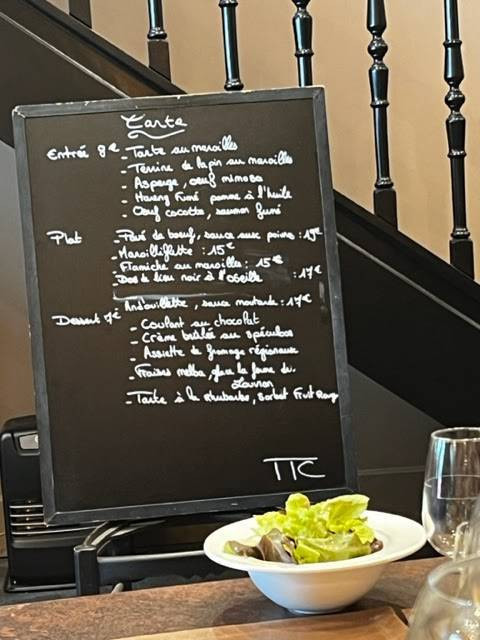 Carte
Entrée 8€ - Tarte au maroilles
- Terrine de lapin au maroilles
- Asperge, oeuf mimosa
- Hareng fumé pomme à l'huile
- Oeuf cocotte, saumon fumé
Plat - Pavé de boeuf, sauce aux poivre : 19€
- Maroilliflette : 15€
- Flamiche au maroilles : 15€
- Dos de lieu noir à l'oseille : 17€
Andouillette, sauce moutarde : 17€
Dessert 7€
- Coulant au chocolat
- Crème brûlée au spéculoos
- Assiette de fromage régionaux
- Fraises melba, glace la ferme du
Louvion
- Tarte à la rhubarbe, sorbet Fruit Rouge
TTC